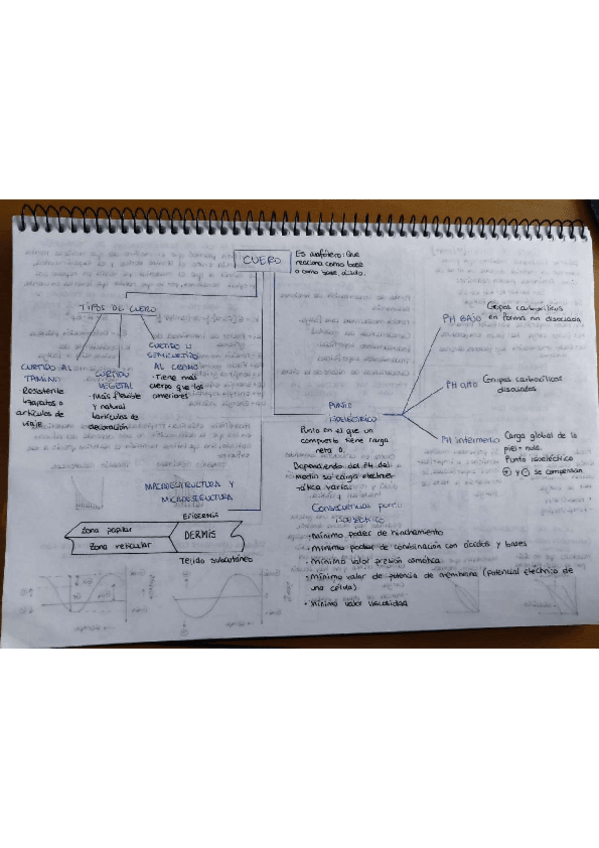 CUERO
Es anfótero: Que
reacciona como base
o como base, ácido.
TIPOS DE CUERO
CURTIDO AL
TANINO
Resistente
zapatos o
artículos de
viaje
CURTIDO
VEGETAL
más flexible
y natural
artículos de
decoración
CURTIDO U
SEMICURTIDO
AL CROMO
· Tiene más
cuerpo que los
anteriores
PUNTO
ISOELÉCTRICO
Punto en el que un
compuesto tiene carga
neta 0.
Dependiendo del PH del
medio su carga electros-
tática varía.
PH BAJO
Grupos carboxílicos
en forma no disociada
PH alto
Grupos carboxílicos
disociados
PH intermedio
Carga global de la
piel = nula.
Punto isoeléctrico
⊕ y ⊖ se compensan
MACROESTRUCTURA Y
MICROESTRUCTURA
EPIDERMIS
Zona papilar
Zona reticular
DERMIS
Tejido subcutáneo
Consecuencias punto
isoeléctrico
· Mínimo poder de hinchamiento
· Mínimo poder de combinación con ácidos y bases
· Mínimo valor presión osmótica
· Mínimo valor de potencia de membrana (potencial eléctrico de
una célula)
· Mínimo valor viscosidad